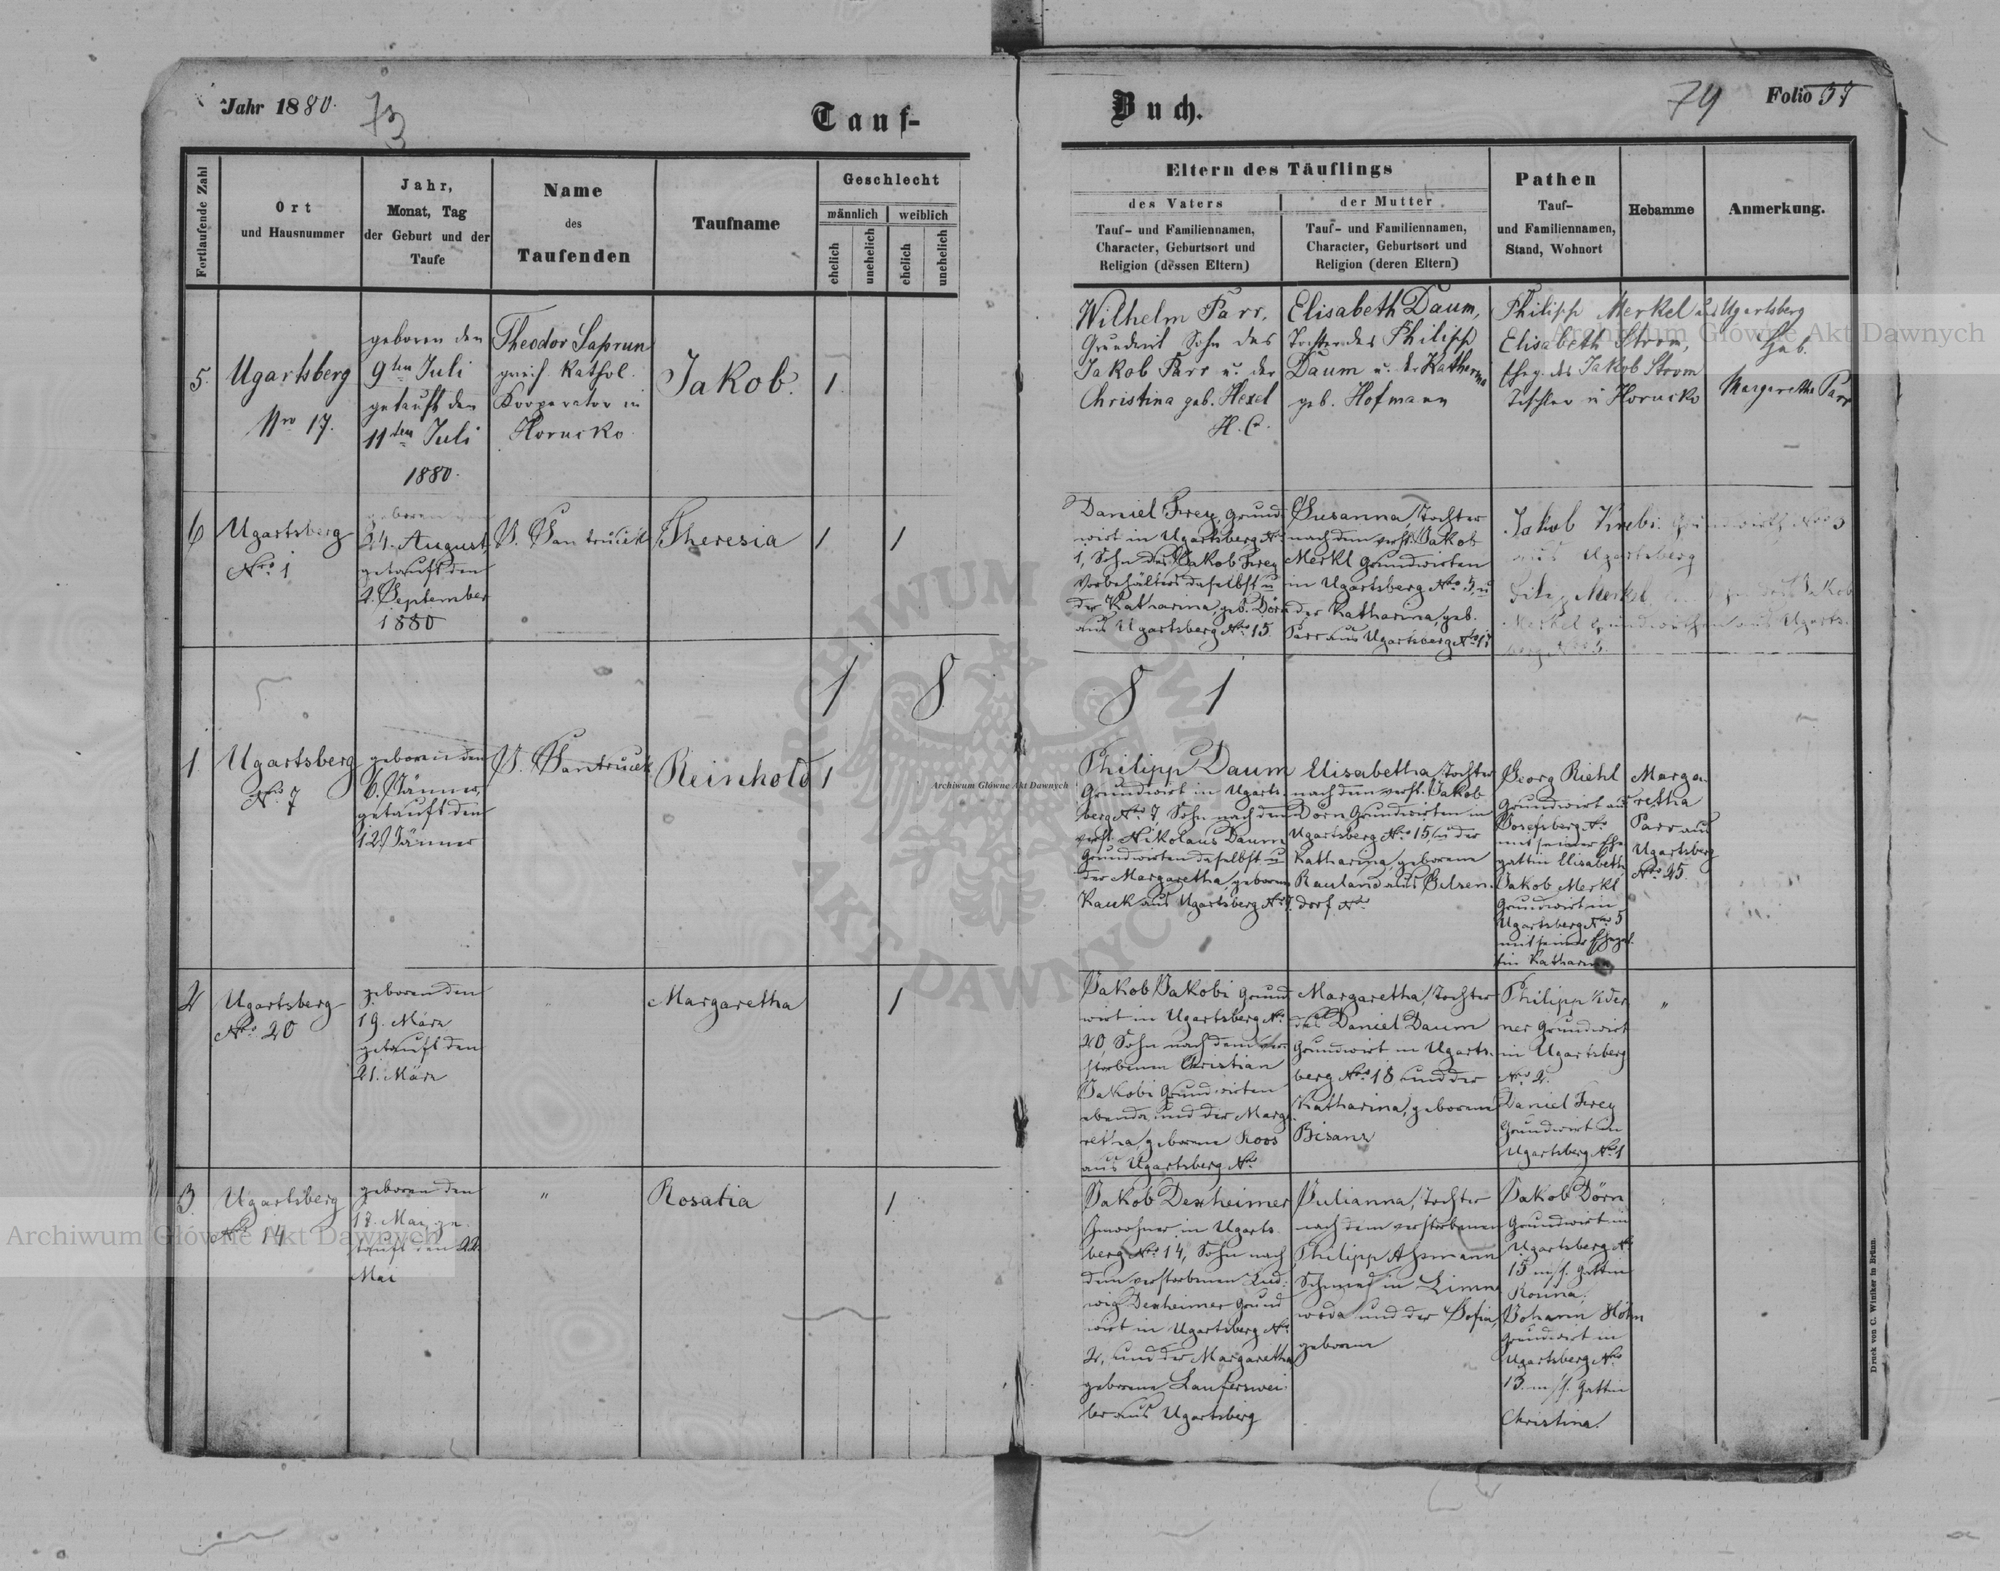 Jahr 1880.
73
Tauf-
Buch.
79
Folio 57
Fortlaufende Zahl
Ort
und Hausnummer
Jahr,
Monat, Tag
der Geburt und der
Taufe
Name
des
Taufenden
Taufname
Geschlecht
männlich
weiblich
ehelich
unehelich
ehelich
unehelich
Eltern des Täuflings
des Vaters
Tauf- und Familiennamen,
Character, Geburtsort und
Religion (dessen Eltern)
der Mutter
Tauf- und Familiennamen,
Character, Geburtsort und
Religion (deren Eltern)
Pathen
Tauf-
und Familiennamen,
Stand, Wohnort
Hebamme
Anmerkung.
5.
Ugartsberg
Nro 17.
geboren den
9ten Juli
getauft den
11ten Juli
1880.
Theodor Saprun
griech. kathol.
Kooperator in
Horucko
Jakob.
1
Wilhelm Parr,
Grundwirt Sohn des
Jakob Parr u. der
Christina geb. Hexel
H. C.
Elisabeth Daum,
Tochter des Philipp
Daum u. der Katharina
geb. Hofmann
Philipp Merkel aus Ugartsberg
Elisabeth Strom,
Eheg. des Jakob Strom
Tischler in Horucko
Heb.
Margaretha Parr
6
Ugartsberg
Nro 1
geboren den
24. August,
getauft den
2. September
1880
P. Santrucek
Theresia
1
1
Daniel Frey, Grund-
wirt in Ugartsberg Nr.
1, Sohn des Jakob Frey
Vorbehälters daselbst u
der Katharina, geb. Dörn
aus Ugartsberg Nro 15.
Susanna, Tochter
nach dem verst. Jakob
Merkl Grundwirten
in Ugartsberg Nro 5, u
der Katharina, geb.
Parr aus Ugartsberg Nro 17
Jakob Krebs Grundwirth Nro 3
aus Ugartsberg
Jakob
Merkel Grundwirthen aus Ugarts-
berg Nro 5.
1
8
8
1
1
Ugartsberg
No 7
geboren den
6. Jänner,
getauft den
12. Jänner
P. Santrucek
Reinhold
1
Philipp Daum
Grundwirt in Ugarts-
berg Nro 7, Sohn nach dem
verst. Nikolaus Daum
Grundwirten daselbst u
der Margaretha, geborene
Kauk aus Ugartsberg No 7.
Elisabetha, Tochter
nach dem verst. Jakob
Dorn Grundwirten in
Ugartsberg No 15, u der
Katharina, geborene
Rauland aus Gelsen-
dorf No
Georg Riehl
Grundwirt aus
Josefsberg No
mit seiner Ehe-
gattin Elisabeth
Jakob Merkl
Grundwirt in
Ugartsberg No 5
mit seiner Ehegat-
tin Katharina
Marga-
retha
Parr aus
Ugartsberg
No 25.
2
Ugartsberg
No 20
geboren den
19. März
getauft den
21. März
Margaretha
1
Jakob Jakobi Grund-
wirt in Ugartsberg No
20, Sohn nach dem ver-
storbenen Christian
Jakobi Grundwirten
ebenda und der Marga-
retha, geborene Koos
aus Ugartsberg No
Margaretha, Tochter
des Daniel Daum
Grundwirt in Ugarts-
berg No 18 und der
Katharina, geborene
Bisanz
Philipp Kder
ner Grundwirt
in Ugartsberg
No 2.
Daniel Frey
Grundwirt in
Ugartsberg No 1
"
3
Ugartsberg
No 14
geboren den
17. Mai, ge-
tauft den 22.
Mai
"
Rosalia
1
Jakob Dexheimer
Inwohner in Ugarts-
berg No 14, Sohn nach
dem verstorbenen Lud-
wig Dexheimer Grund-
wirt in Ugartsberg No
2, und der Margaretha
geborene Lauferswei-
ler aus Ugartsberg
Julianna, Tochter
nach dem verstorbenen
Philipp
Schmied in Limna
woda und der Sofia,
geborene
Jakob Dörn
Grundwirt in
Ugartsberg No
15 m/s. Gattin
Rosina.
Johann Höhn
Grundwirt in
Ugartsberg No
13 m/s. Gattin
Christina.
Druck von C. Winiker in Brünn.
Archiwum Główne Akt Dawnych
Archiwum Główne Akt Dawnych
Archiwum Główne Akt Dawnych
ARCHIWUM GŁÓWNE AKT DAWNYCH